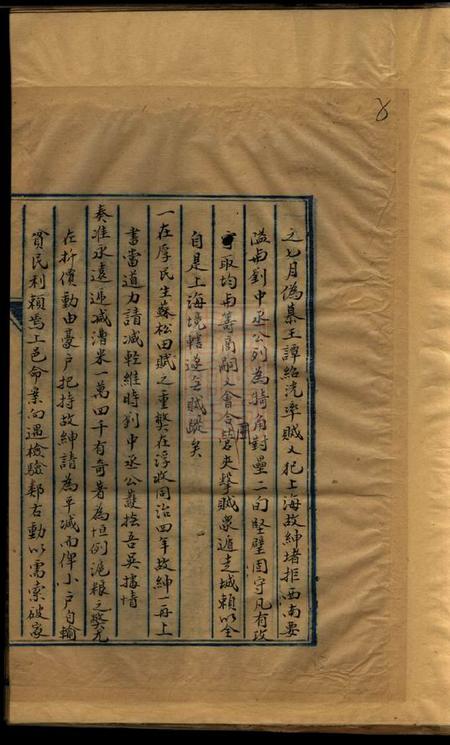 8
之七月偽慕王譚紹洸率賊又犯上海故紳堵拒西南要
隘與劉中丞公列為犄角對壘二旬堅壁固守凡有攻
守取均與籌商嗣又會合營夾擊賊眾遁走城賴以全
自是上海境轄遂無賊蹤矣
一在厚民生蘇松田賦之重獘在浮收同治四年故紳一再上
書當道力請減輕維時劉中丞公嚴撫吾吳據情
奏准永遠遞減漕米一萬四千有奇著為恒例滬糧之獘尤
在折價動由豪戶把持故紳請為平減而俾小戶自輸
貧民利賴焉上邑命案向遇檢驗鄰右動以需索破家